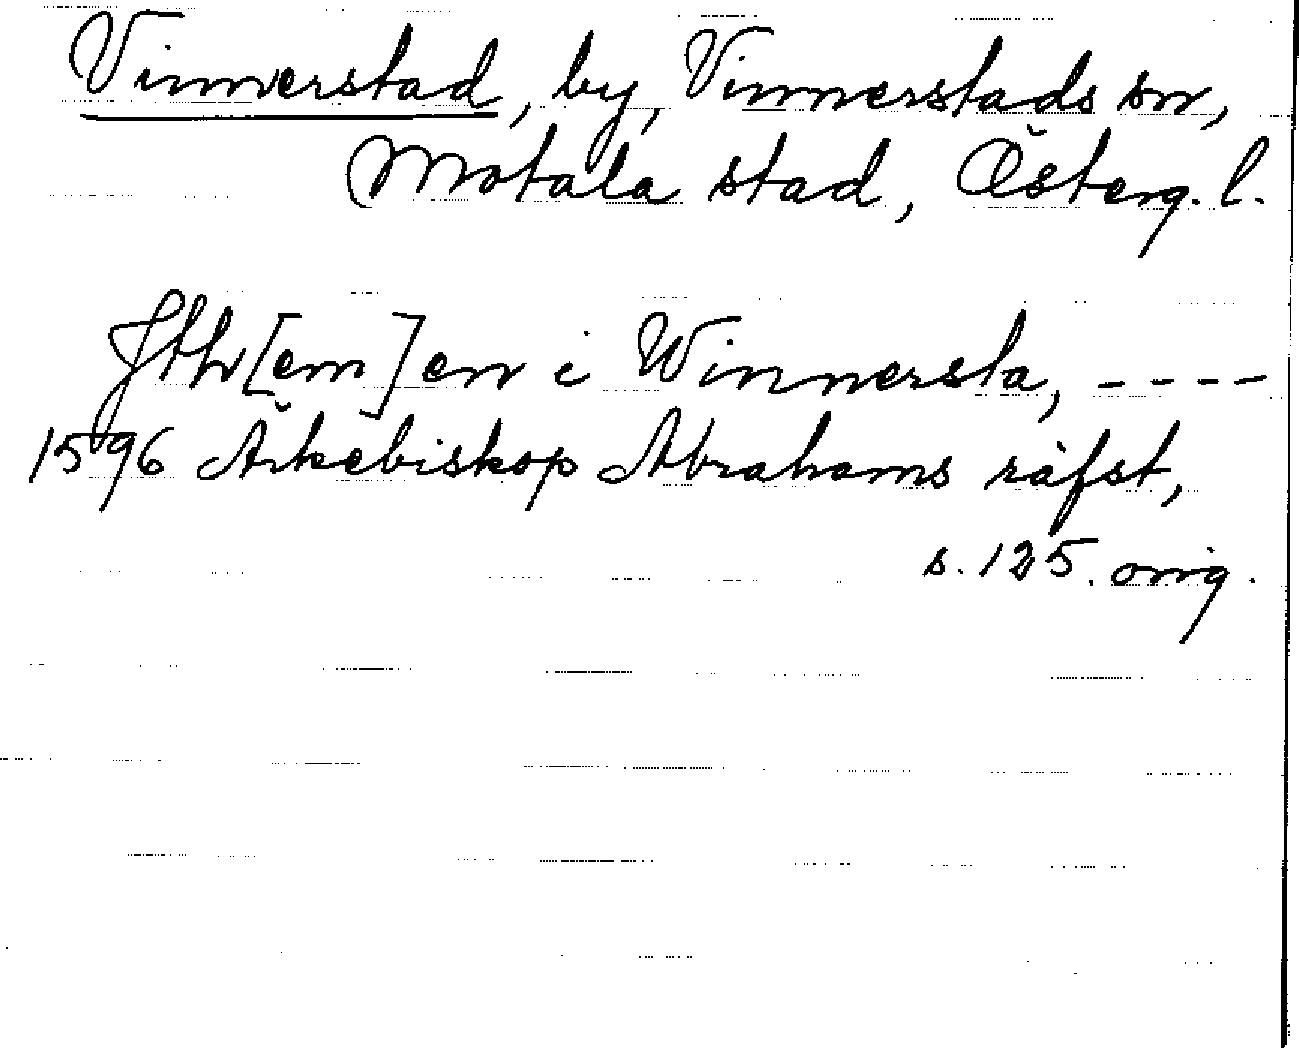 Vinnerstad, by, Vinnerstads sn,
Motala stad, Österg. l.
Jth[em] en i Winnersta, ----
1596 Ärkebiskop Abrahams räfst,
s. 125. orig.